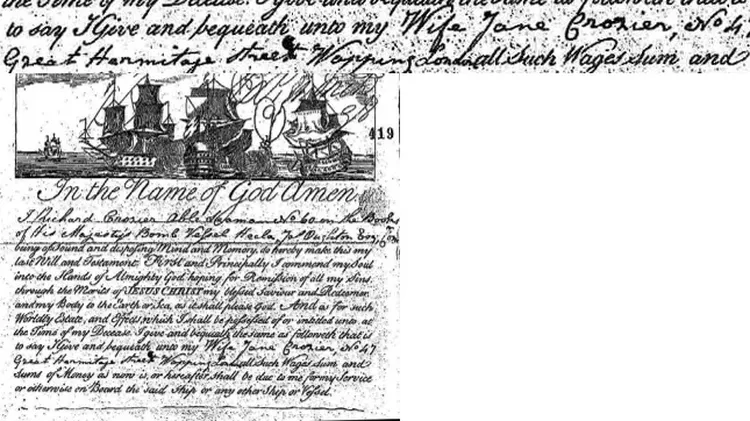 the Time of my Decease. I give and bequeath the same as followeth that is
to say I Give and bequeath unto my Wife Jane Crozier, No 4,
Great Hermitage Street Wapping London all Such Wages Sum and
419
In the Name of God Amen
I Richard Crozier Able Seaman No 60 on the Books
of His Majesty's Bomb Vessel Hecla
being of Sound and disposing Mind and Memory, do hereby make this my
last Will and Testament. First and Principally I commend my Soul
into the Hands of Almighty God hoping for Remission of all my Sins
through the Merits of JESUS CHRIST my blessed Saviour and Redeemer
and my Body to the Earth or Sea, as it shall please God. And as for such
Worldly Estate, and Effects, which I shall be possessed of or entitled unto at
the Time of my Decease. I give and bequeath the same as followeth that is
to say I Give and bequeath unto my Wife Jane Crozier, No 47
Great Hermitage Street Wapping London all Such Wages Sum and
Sums of Money as now is, or hereafter shall be due to me for my Service
or otherwise on Board the said Ship or any other Ship or Vessel.